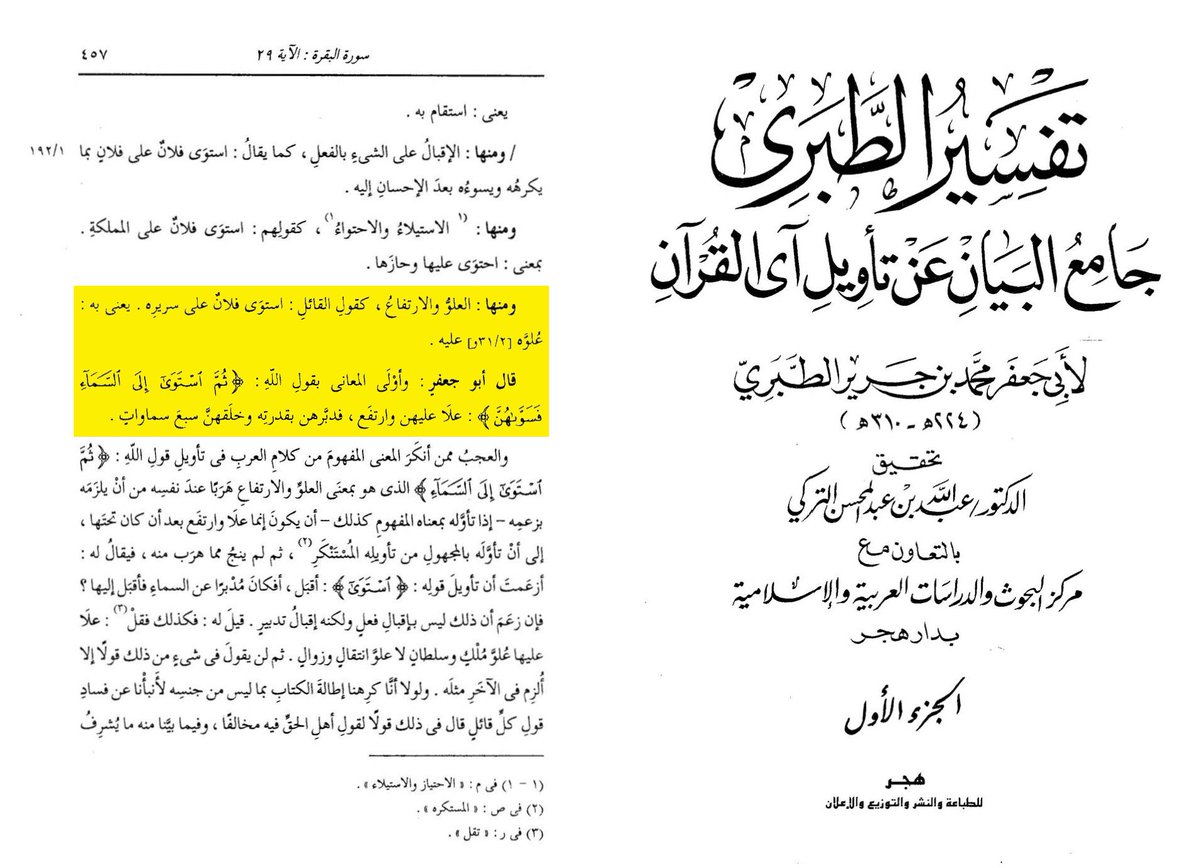 سورة البقرة : الآية ٢٩
٤٥٧
يعنى : استقام به .
/ ومنها : الإقبالُ على الشىءِ بالفعلِ ، كما يقالُ : استوَى فلانٌ على فلانٍ بما
١٩٢/١
يكرهُه ويسوءُه بعدَ الإحسانِ إليه .
ومنها : (١ الاستيلاءُ والاحتواءُ١) ، كقولِهم : استوَى فلانٌ على المملكةِ .
بمعنى : احتوَى عليها وحازَها .
ومنها : العلوُّ والارتفاعُ ، كقولِ القائلِ : استوَى فلانٌ على سريرِه . يعنى به :
عُلوَّه [٣١/٢و] عليه .
قال أبو جعفرٍ : وأوْلَى المعانى بقولِ اللهِ : ﴿ ثُمَّ ٱسْتَوَىٰٓ إِلَى ٱلسَّمَآءِ
فَسَوَّىٰهُنَّ ﴾ : علَا عليهن وارتفَع ، فدبَّرهن بقدرتِه وخلَقهنَّ سبعَ سماواتٍ .
والعجبُ ممن أنكَرَ المعنى المفهومَ من كلامِ العربِ فى تأويلِ قولِ اللهِ : ﴿ ثُمَّ
ٱسْتَوَىٰٓ إِلَى ٱلسَّمَآءِ ﴾ الذى هو بمعنَى العلوِّ والارتفاعِ هَرَبًا عندَ نفسِه من أنْ يلزَمَه
بزعمِه – إذا تأوَّله بمعناه المفهومِ كذلك – أن يكونَ إنما علَا وارتفَع بعد أن كان تحتَها ،
إلى أنْ تأوَّلَه بالمجهولِ من تأويلِه المُسْتَنْكَرِ(٢) ، ثم لم ينجُ مما هرَب منه ، فيقالُ له :
أزعَمتَ أن تأويلَ قولِه : ﴿ ٱسْتَوَىٰٓ ﴾ : أقبَل ، أفكانَ مُدْبرًا عن السماءِ فأقبَل إليها ؟
فإن زعَمَ أن ذلك ليس بإقبالِ فعلٍ ولكنه إقبالُ تدبيرٍ . قيلَ له : فكذلك فقلْ(٣) : علَا
عليها عُلوَّ مُلْكٍ وسلطانٍ لا علوَّ انتقالٍ وزوالٍ . ثم لن يقولَ فى شىءٍ من ذلك قولًا إلا
أُلزِم فى الآخَرِ مثلَه . ولولا أنَّا كرِهنا إطالةَ الكتابِ بما ليس من جنسِه لأنبأْنا عن فسادِ
قولِ كلِّ قائلٍ قال فى ذلك قولًا لقولِ أهلِ الحقِّ فيه مخالفًا ، وفيما بيَّنا منه ما يُشرِفُ
(١ – ١) فى م : « الاحتياز والاستيلاء » .
(٢) فى ص : « المستكره » .
(٣) فى ر : « تقل » .
تَفسِيرُ الطَّبَرِى
جَامِعُ البَيَانِ عَنْ تَأوِيلِ آىِ القُرآنِ
لأَبِى جَعفَر مُحمَّد بن جَرِير الطَّبَرِىّ
( ٢٢٤هـ - ٣١٠هـ )
تحقيق
الدكتور/ عبد الله بن عبد المحسن التركي
بالتعاون مع
مركز البحوث والدراسات العربية والإسلامية
بدار هجر
الجزء الأول
هجر
للطباعة والنشر والتوزيع والإعلان